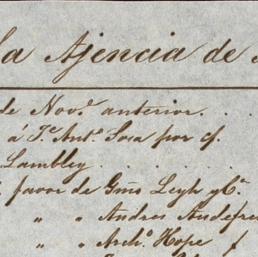 la Ajencia de
de Nov.e anterior . . .
á J.e Ant.o Sosa por cf.
Lambley . . . .
favor de Gmo Leyh y C.a
" " Andres Audefre
" " Arch.o Hope f